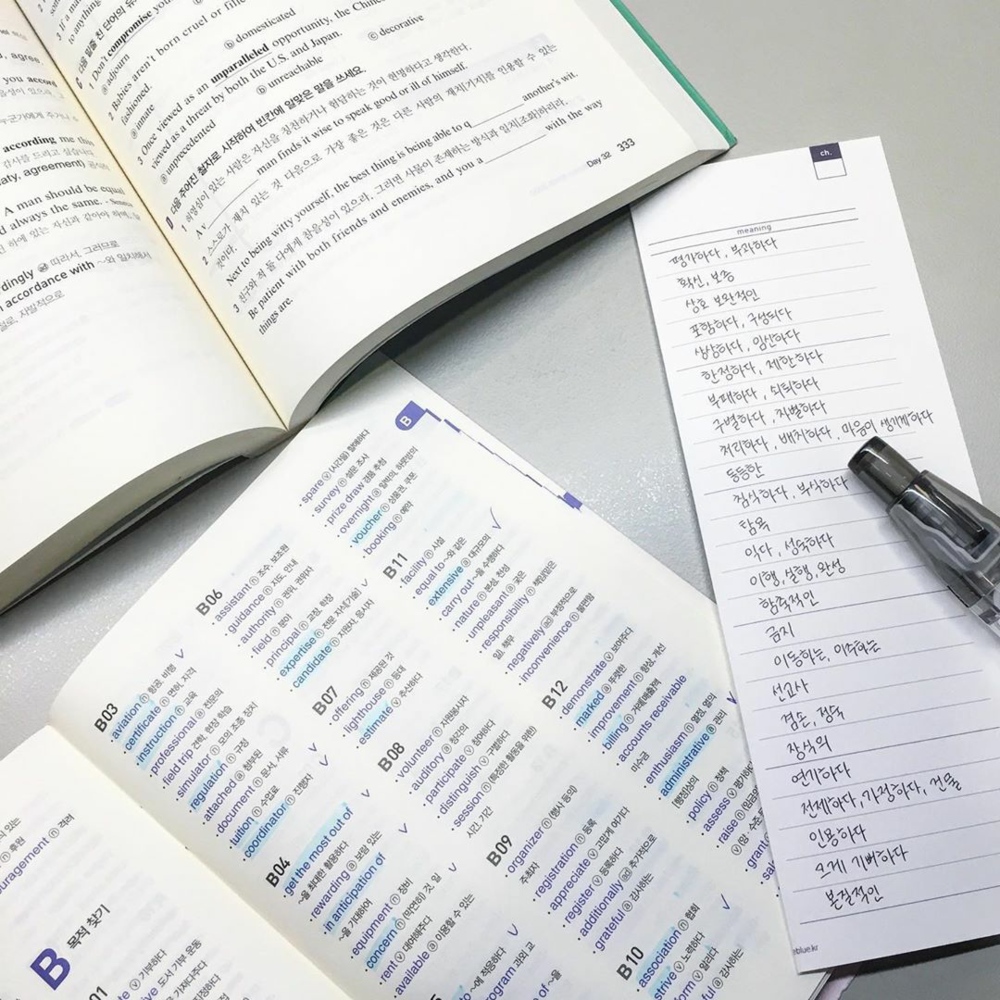 agree
you accord
according me the
aty, agreement)
A man should be equal
d always the same.
rdingly 따라서, 그러므로
accordance with ~와 일치해서
Don't compromise you
ⓐ adjourn
ⓑ domesticated
2 Babies aren't born cruel or
fashioned.
ⓐ innate
ⓒ decorative
3 Once viewed as an unparalleled opportunity, the Chinese
viewed as a threat by both the U.S. and Japan.
ⓐ unprecedented
ⓑ unreachable
다음 주어진 철자로 시작하여 빈칸에 알맞은 말을 쓰세요.
1 허영심이 있는 사람은 자신을 칭찬하거나 험담하는 것이 현명하다고 생각한다.
A v man finds it wise to speak good or ill of himself.
2 스스로가 재치 있는 것 다음으로 가장 좋은 것은 다른 사람의 재치(기지)를 인용할 수 있는
것이다.
Next to being witty yourself, the best thing is being able to q another's wit.
3 친구와 적 둘 다에게 참을성이 있으라, 그러면 사물이 존재하는 방식과 일치(조화)하리라.
Be patient with both friends and enemies, and you a with the way
things are.
Day 32 333
ch.
meaning
평가하다, 부과하다
확신, 보증
상호 보완적인
포함하다, 구성되다
상상하다, 임신하다
한정하다, 제한하다
부패하다, 쇠퇴하다
구별하다, 차별하다
처리하다, 배치하다, 마음이 생기게 하다
동등한
침식하다, 부식하다
탐욕
익다, 성숙하다
이행, 실행, 완성
함축적인
금지
이동하는, 이주하는
선교사
겸손, 정숙
장식의
연기하다
전제하다, 가정하다, 건물
인용하다
크게 기뻐하다
본질적인
eblue.kr
B
spare ⓥ (시간을) 할애하다
survey ⓝ 설문 조사
prize draw 경품 추첨
overnight ⓐ 일박의, 하룻밤의
voucher ⓝ 상품권, 쿠폰
booking ⓝ 예약
B11
facility ⓝ 시설
equal to ~와 같은
extensive ⓐ 대규모의
carry out ~을 수행하다
nature ⓝ 본성, 천성
unpleasant ⓐ 궂은
responsibility ⓝ 책임(맡은
일), 책무
negatively ⓐⓓ 부정적으로
inconvenience ⓝ 불편함
B12
demonstrate ⓥ 보여주다
marked ⓐ 뚜렷한
improvement ⓝ 향상, 개선
billing ⓝ 거래매출액
accounts receivable
미수금
enthusiasm ⓝ 열정, 열의
administrative ⓐ 관리
(행정)상의
policy ⓝ 정책
assess ⓥ 평가하다
raise ⓝ
grant
B06
assistant ⓝ 조수, 보조원
guidance ⓝ 지도, 안내
authority ⓝ 권위, 권위자
field ⓝ 분야
principal ⓝ 교장, 학장
expertise ⓝ 전문 지식(기술)
candidate ⓝ 지원자, 응시자
B07
offering ⓝ 제공된 것
lighthouse ⓝ 등대
estimate ⓥ 추산하다
B08
volunteer ⓝ 자원봉사자
auditory ⓐ 청각의
participate ⓥ 참여하다
distinguish ⓥ 구별하다
session ⓝ (특정한 활동을 위한)
시간, 기간
B09
organizer ⓝ (행사 등의)
주최자
registration ⓝ 등록
appreciate ⓥ 고맙게 여기다
register ⓥ 등록하다
additionally ⓐⓓ 추가적으로
grateful ⓐ 감사하는
B10
association ⓝ 협회
strive ⓥ 노력하다
form ⓥ 알리다
ful ⓐ 감사하는
B03
aviation ⓝ 항공, 비행
certificate ⓝ 면허, 자격
instruction ⓝ 교육
professional ⓐ 전문의
field trip 견학, 현장 학습
simulator ⓝ 모의 조종 장치
regulation ⓝ 규정
attached ⓐ 첨부된
document ⓝ 문서, 서류
tuition ⓝ 수업료
coordinator ⓝ 진행자
B04
get the most out of
~을 최대한 활용하다
rewarding ⓐ 보람 있는
in anticipation of
~을 기대하여
equipment ⓝ 장비
concern ⓝ (막연히) 것, 일
rent ⓥ 대여해주다
available ⓐ 이용할 수 있는
B 목적 찾기
uragement ⓝ 격려